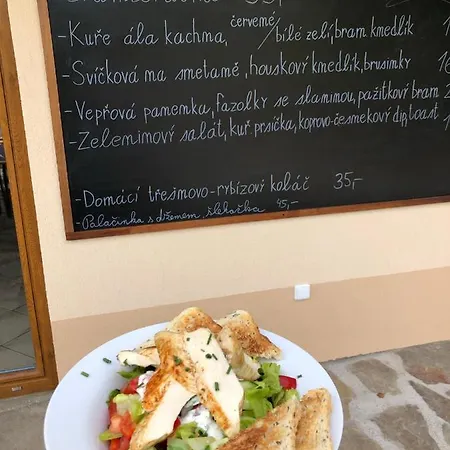 33,-
-Kuře ála kachma, červené/bílé zelí, bram kmedlík
-Svíčková ma smetamě, houskový kmedlík, brusimky
-Vepřová pamemka, fazolky se slamimou, pažitkový bram
-Zelemimový salát, kuř. prsíčka, koprovo-česmekový dip, toast
-Domácí třešmovo-rybízový koláč 35,-
-Palačimka s džemem, šlehačka 45,-